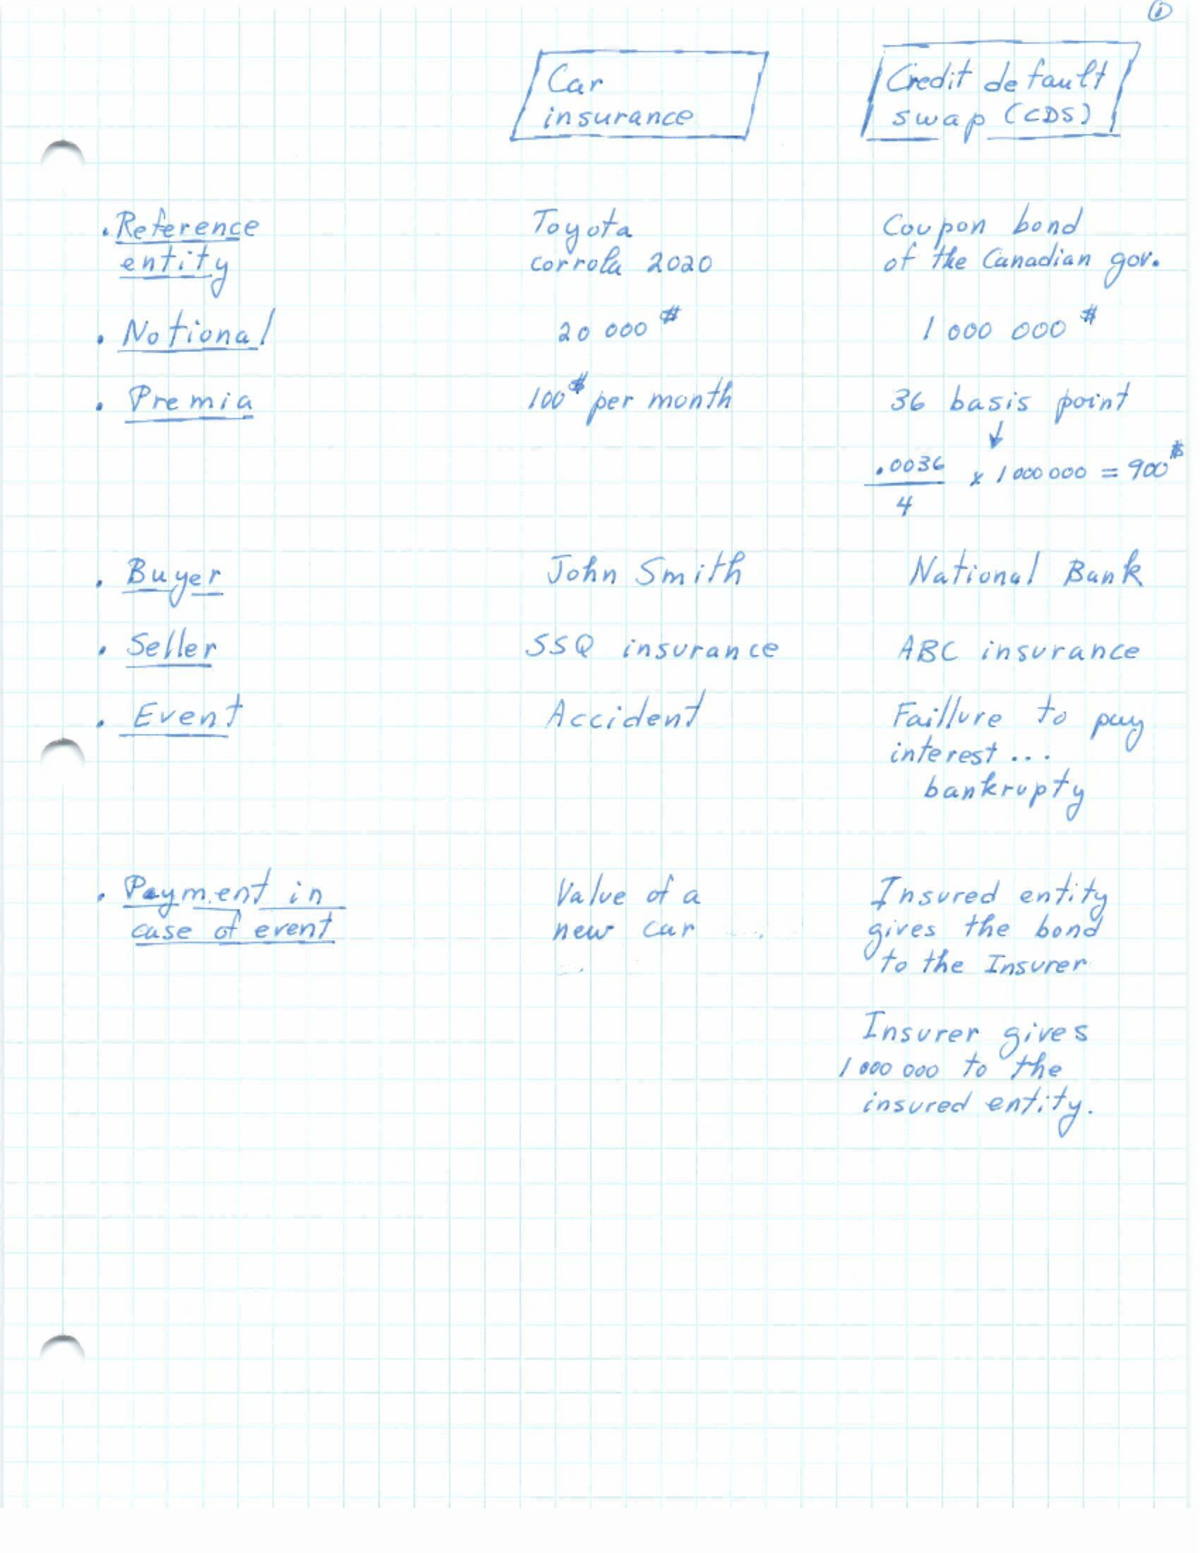 ①
Car
insurance
Credit default
swap (CDS)
. Reference
entity
Toyota
corrola 2020
Coupon bond
of the Canadian gov.
. Notional
20 000 $
1 000 000 $
. Premia
100 $ per month
36 basis point
↓
.0036
4
x 1 000 000 = 900 $
. Buyer
John Smith
National Bank
. Seller
SSQ insurance
ABC insurance
. Event
Accident
Faillure to pay
interest ...
bankrupty
. Payment in
case of event
Value of a
new car
Insured entity
gives the bond
to the Insurer
Insurer gives
1 000 000 to the
insured entity.